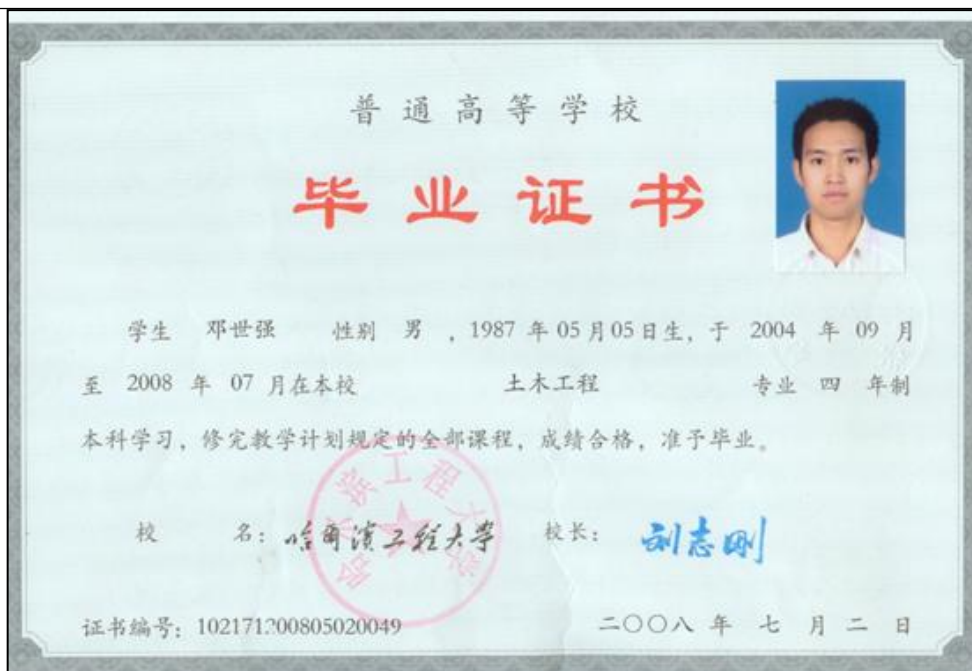 普通高等学校
毕业证书
学生 邓世强 性别 男 ，1987 年 05 月 05 日生，于 2004 年 09 月
至 2008 年 07 月在本校 土木工程 专业 四 年制
本科学习，修完教学计划规定的全部课程，成绩合格，准予毕业。
校 名：哈尔滨工程大学 校长：刘志刚
哈尔滨工程大学
证书编号：102171200805020049 二〇〇八 年 七 月 二 日